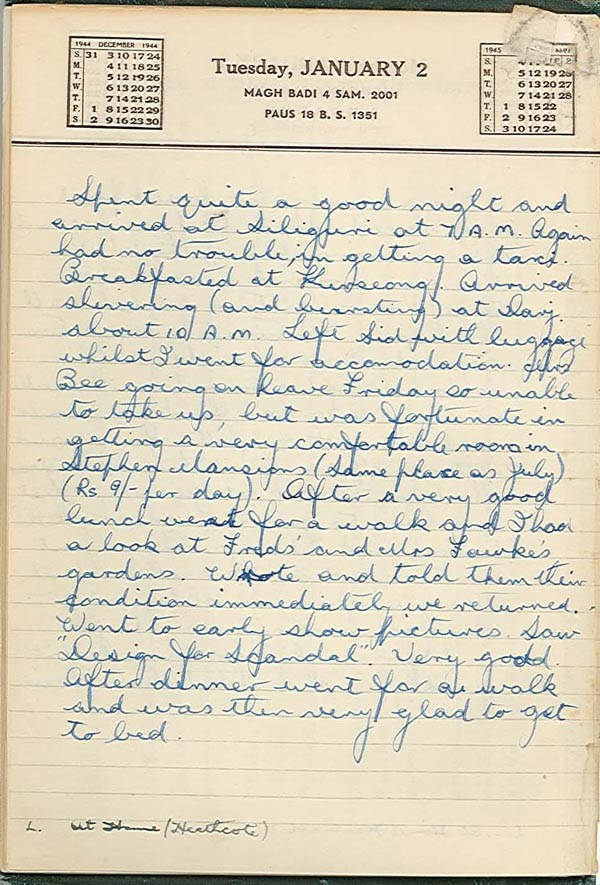 1944 DECEMBER 1944
S. 31 3 10 17 24
M. 4 11 18 25
T. 5 12 19 26
W. 6 13 20 27
T. 7 14 21 28
F. 1 8 15 22 29
S. 2 9 16 23 30
Tuesday, JANUARY 2
MAGH BADI 4 SAM. 2001
PAUS 18 B. S. 1351
1945
S.
M. 5 12 19 26
T. 6 13 20 27
W. 7 14 21 28
T. 1 8 15 22
F. 2 9 16 23
S. 3 10 17 24
Spent quite a good night and
arrived at Siliguri at 7 A.M. Again
had no trouble, in getting a taxi.
Breakfasted at Kurseong. Arrived
shivering (and bursting) at Darj.
about 10 A.M. Left Sid with luggage
whilst I went for accomodation. Mrs
Bee going on leave Friday so unable
to take us, but was fortunate in
getting a very comfortable room in
Stephen Mansions (Same place as July)
(Rs 9/- per day). After a very good
lunch went for a walk and I had
a look at Freds' and Mrs Fawke's
gardens. Wrote and told them their
condition immediately we returned.
Went to early show pictures. Saw
"Design for Scandal". Very good.
After dinner went for a walk
and was then very glad to get
to bed.
L. At Home (Heathcote)